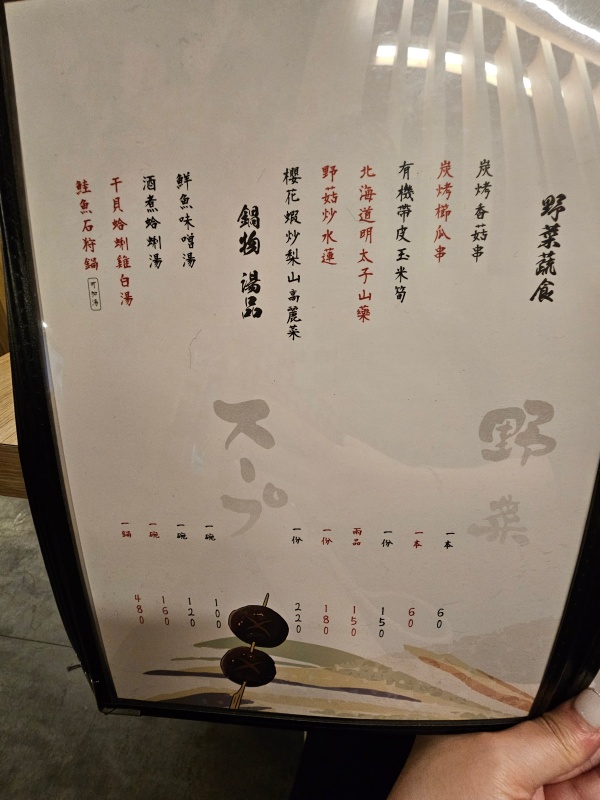 野菜蔬食
炭烤香菇串 一本 60
炭烤櫛瓜串 一本 60
有機帶皮玉米筍 一份 150
北海道明太子山藥 兩品 150
野菇炒水蓮 一份 180
櫻花蝦炒梨山高麗菜 一份 220
野菜
鍋物 湯品
鮮魚味噌湯 一碗 100
酒煮蛤蜊湯 一碗 120
干貝蛤蜊雞白湯 一碗 160
鮭魚石狩鍋 可加湯 一鍋 480
スープ